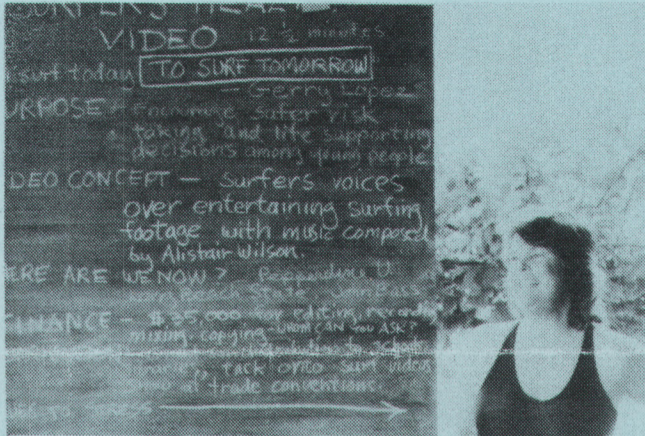 VIDEO 12 ½ minutes
surf today TO SURF TOMORROW
- Gerry Lopez
URPOSE - Encourage safer risk
taking and life supporting
decisions among young people
DEO CONCEPT - Surfers voices
over entertaining surfing
footage with music composed
by Alistair Wilson.
ERE ARE WE NOW?
Long Beach State,
FINANCE - $35,000 for editing, recording
mixing, copying - WHOM CAN YOU ASK?
to schools
libraries, tack onto surf videos
show at trade conventions.